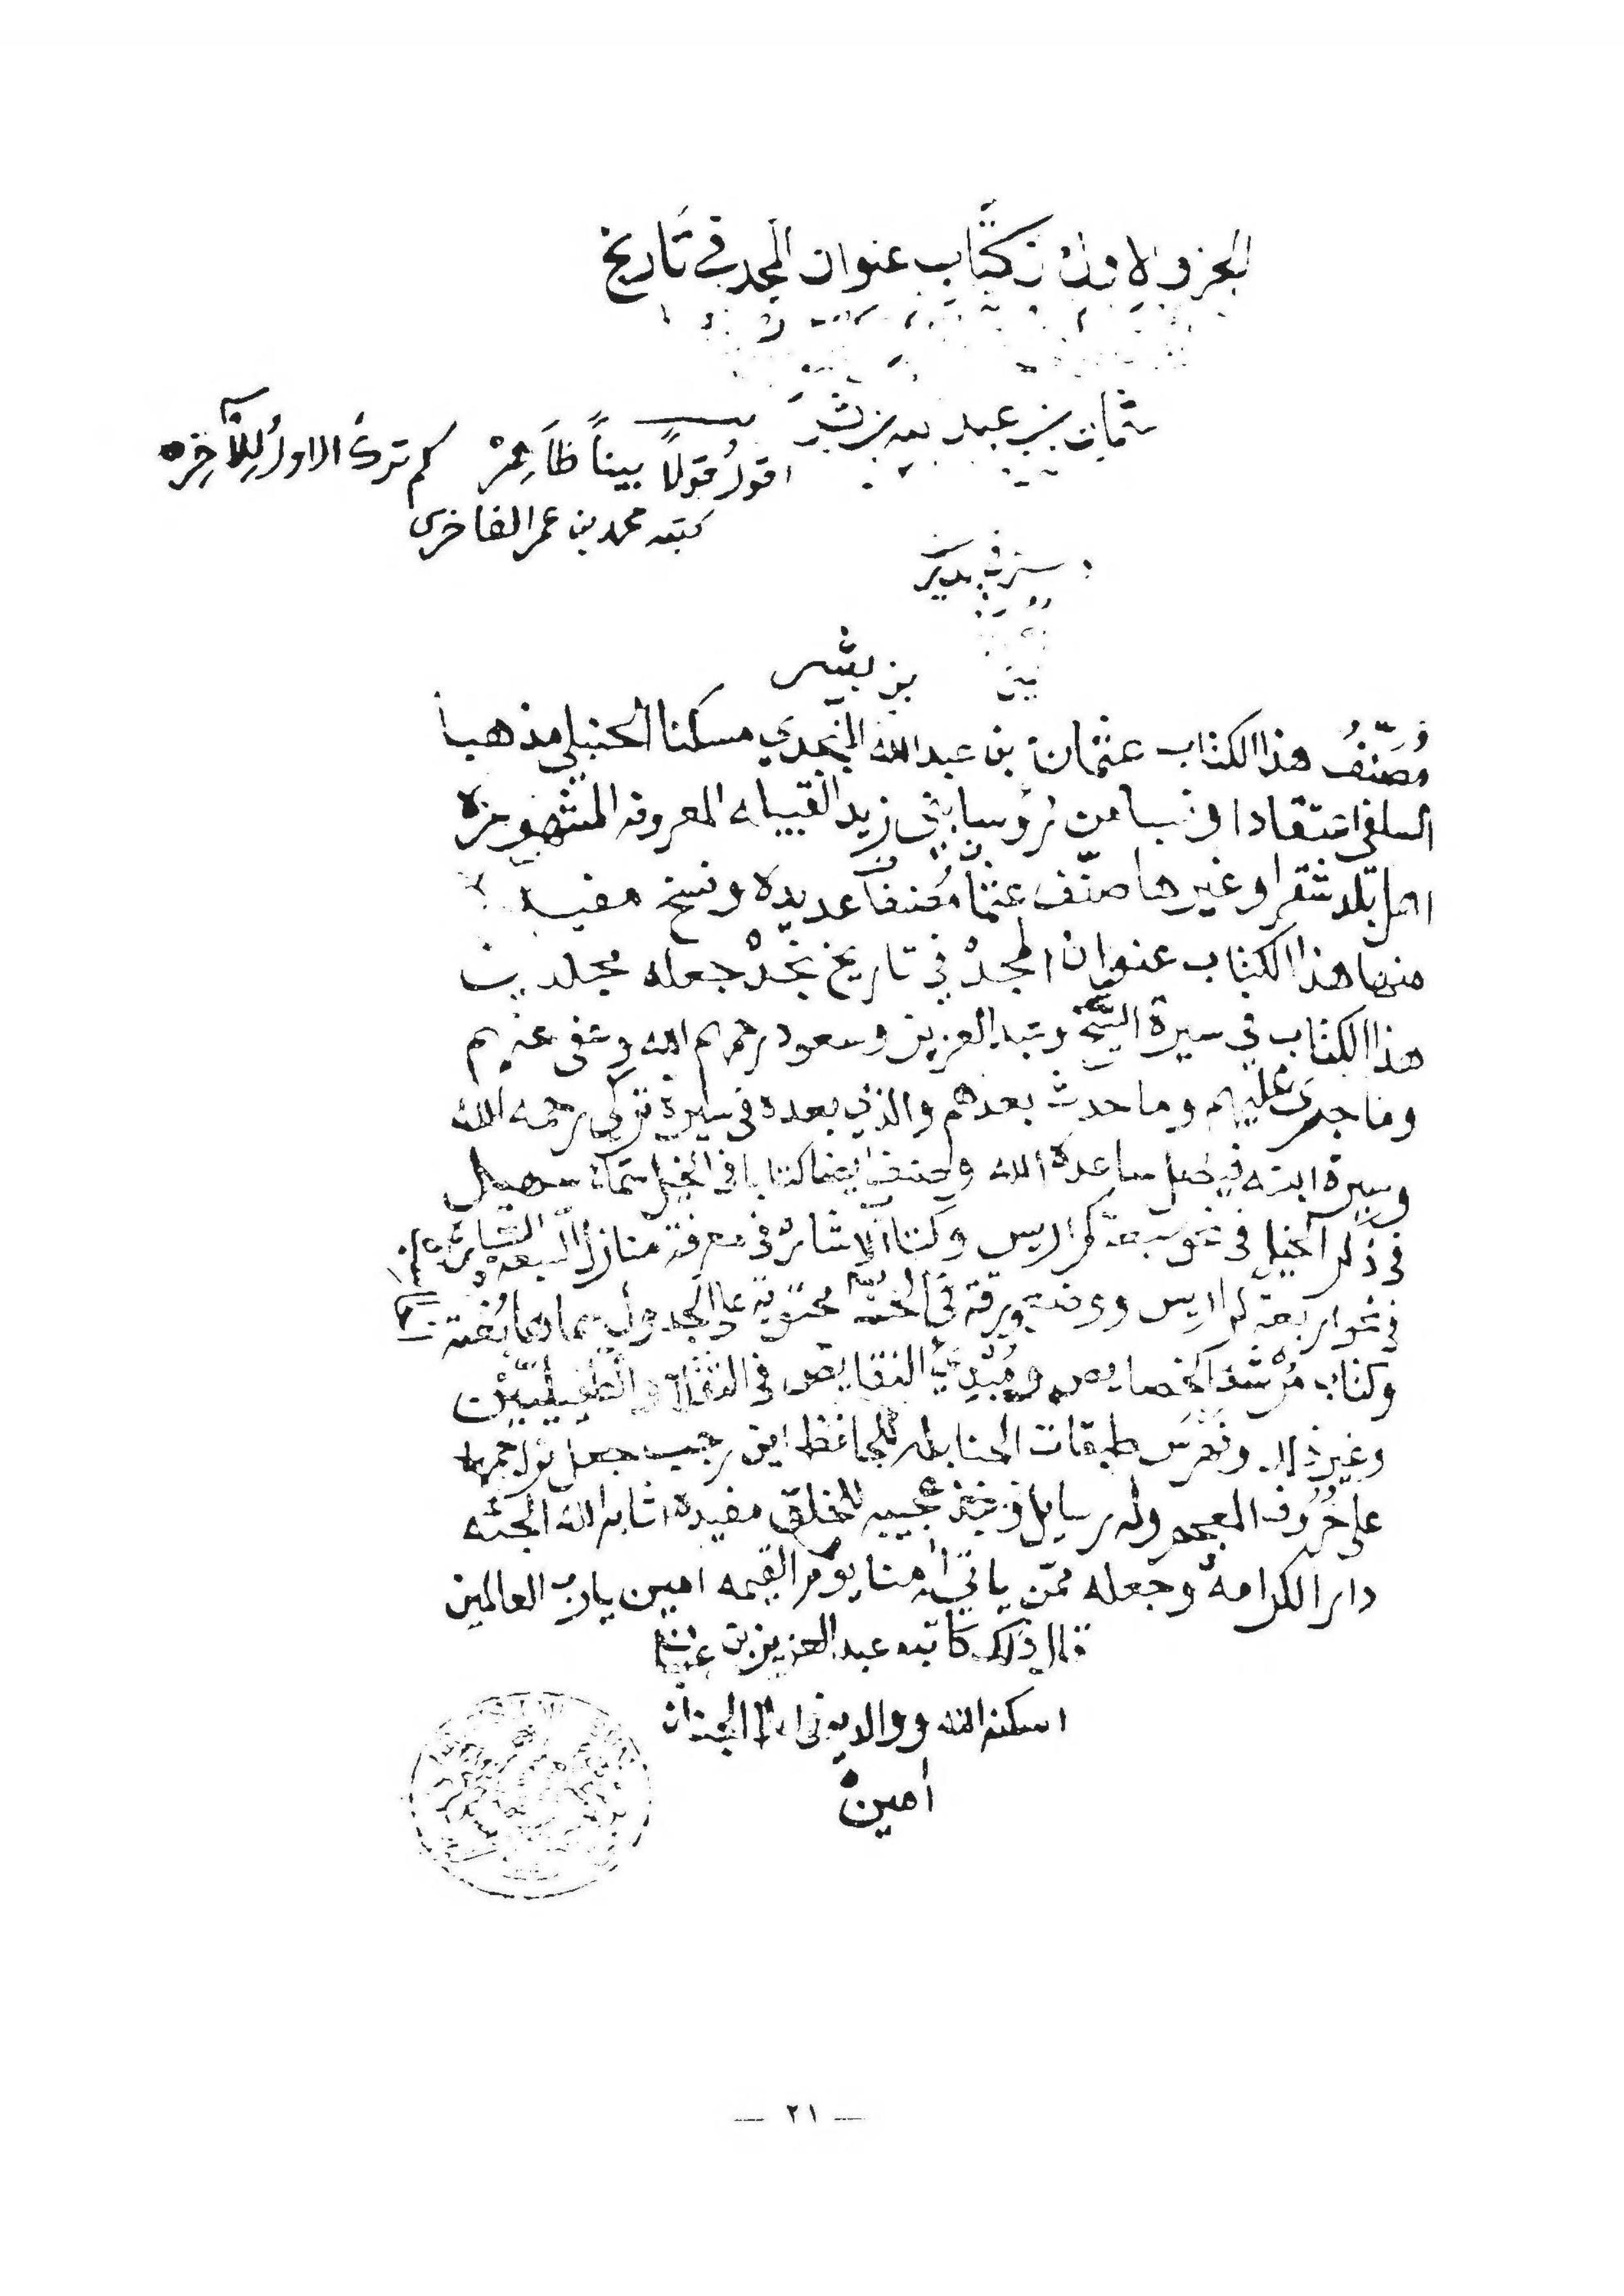 الجزو الاول من كتاب عنوان المجد في تاريخ
عثمان بن عبد الله بن بشر
اقول قولاً بيناً ظاهره كم ترك الاول للآخره
كتبه محمد بن عمر الفاخري
بن بشر
مُصَنِّفُ هذا الكتاب عثمان بن عبد الله النجدي مسكنا الحنبلي مذهبا
السلفي اعتقادا نسبا من رؤسا بني زيد القبيله المعروفه المشهوره
اهل بلد شقرا وغيرها صنّف عثمان مصنفا عديده ونسخ مفيده
منها هذا الكتاب عنوان المجد في تاريخ نجد جعله مجلدين
هذا الكتاب في سيرة الشيخ وعبد العزيز وسعود رحمهم الله وعفى عنهم
وما جرى عليهم وما حدث بعدهم والذي بعده في سيرة تركي رحمه الله
وسيرة ابنه فيصل ساعده الله وصنف ايضا كتابا في الخيل سماه سهيل
في ذكر الخيل في نحو سبعة كراريس وكتاب الاشاره في معرفة منازل السبعة السياره
في نحو اربعة كراريس ورقة محتوية على الجدول سماها بغية
وكتاب مُرْشد الخصايص ومُبْدِي النقايص في الثقلا والطفيليين
وغير ذلك وفهرس طبقات الحنابله للحافظ ابن رجب جعل تراجمها
على حُرُوف المعجم وله رسايل عجيبه للخلق مفيدة اثابه الله الجنه
دار الكرامه وجعله ممّن ياتي أمنا يوم القيمه امين يارب العالمين
قال ذلك كاتبه عبد العزيز بن عثمان
اسكنه الله ووالديه الجنان
أمين
— ٢١ —